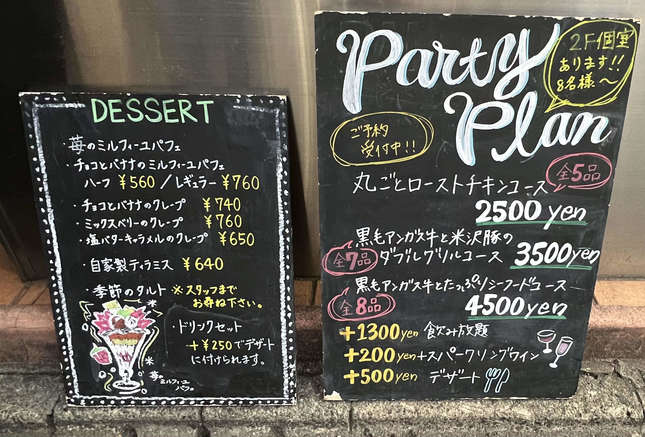 DESSERT
・苺のミルフィーユパフェ
・チョコとバナナのミルフィーユパフェ
ハーフ ¥560 / レギュラー ¥760
・チョコとバナナのクレープ ¥740
・ミックスベリーのクレープ ¥760
・塩バターキャラメルのクレープ ¥650
・自家製ティラミス ¥640
・季節のタルト ※スタッフまで
お尋ね下さい。
・ドリンクセット
+¥250でデザート
に付けられます。
苺ミルフィーユ
パフェ
Party
Plan
2F個室
あります!!
8名様〜
ご予約
受付中!!
丸ごとローストチキンコース
全5品
2500 yen
黒毛アンガス牛と米沢豚の
全7品 ダブルグリルコース 3500yen
黒毛アンガス牛とたっぷりシーフードコース
全8品 4500yen
+1300yen 飲み放題
+200yen+スパークリングワイン
+500yen デザート